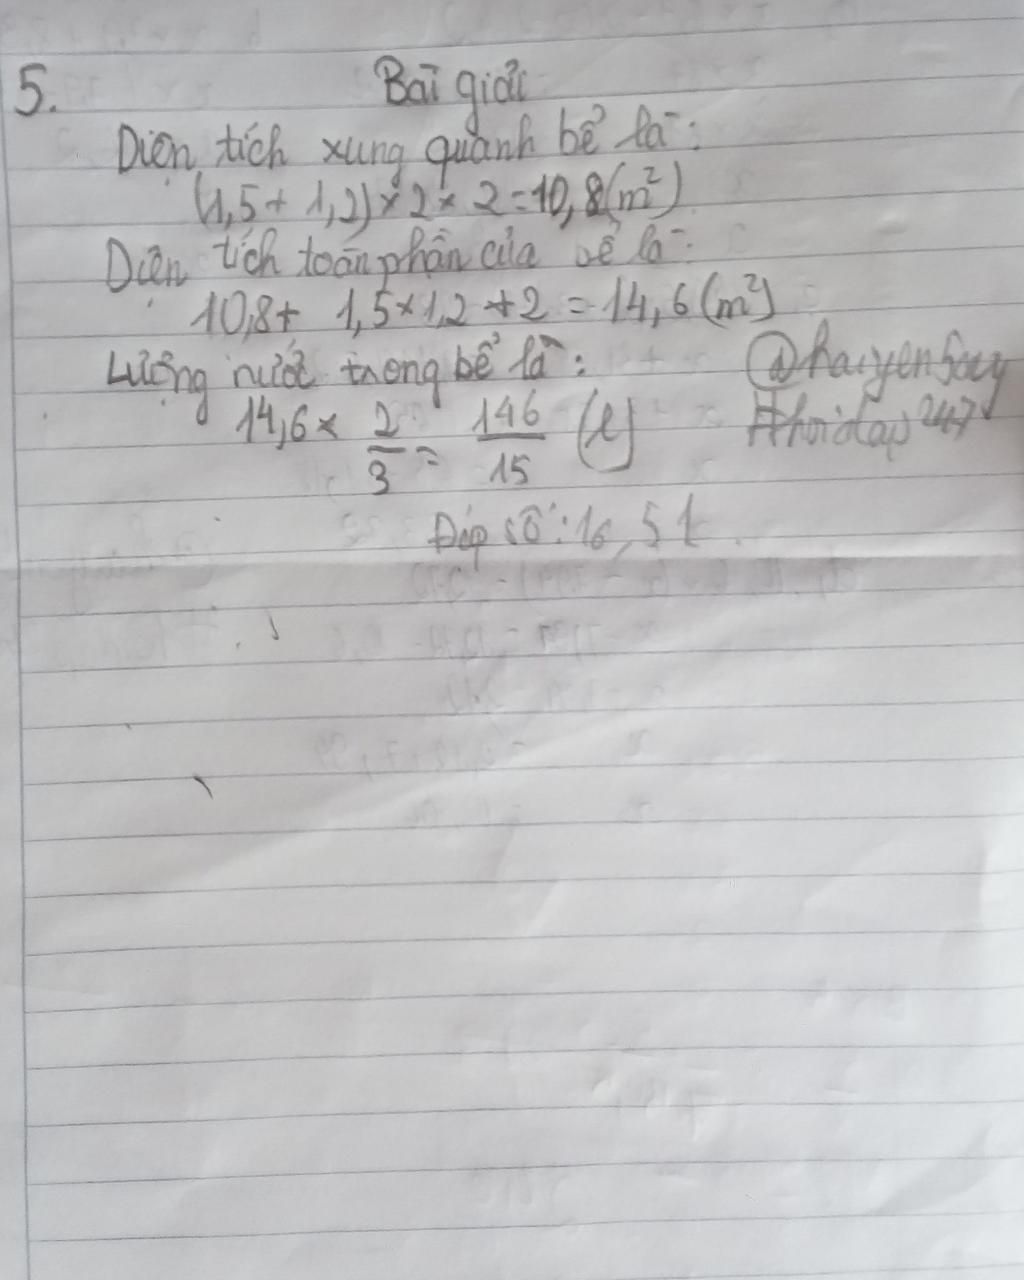 5. Bài giải
Diện tích xung quanh bể là:
(1,5 + 1,2) × 2 × 2 = 10,8 (m²)
Diện tích toàn phần của bể là:
10,8 + 1,5 × 1,2 × 2 = 14,6 (m²)
Lượng nước trong bể là:
14,6 × 2/3 = 146/15 (l)
#hoidap247
Đáp số: 16,5 l